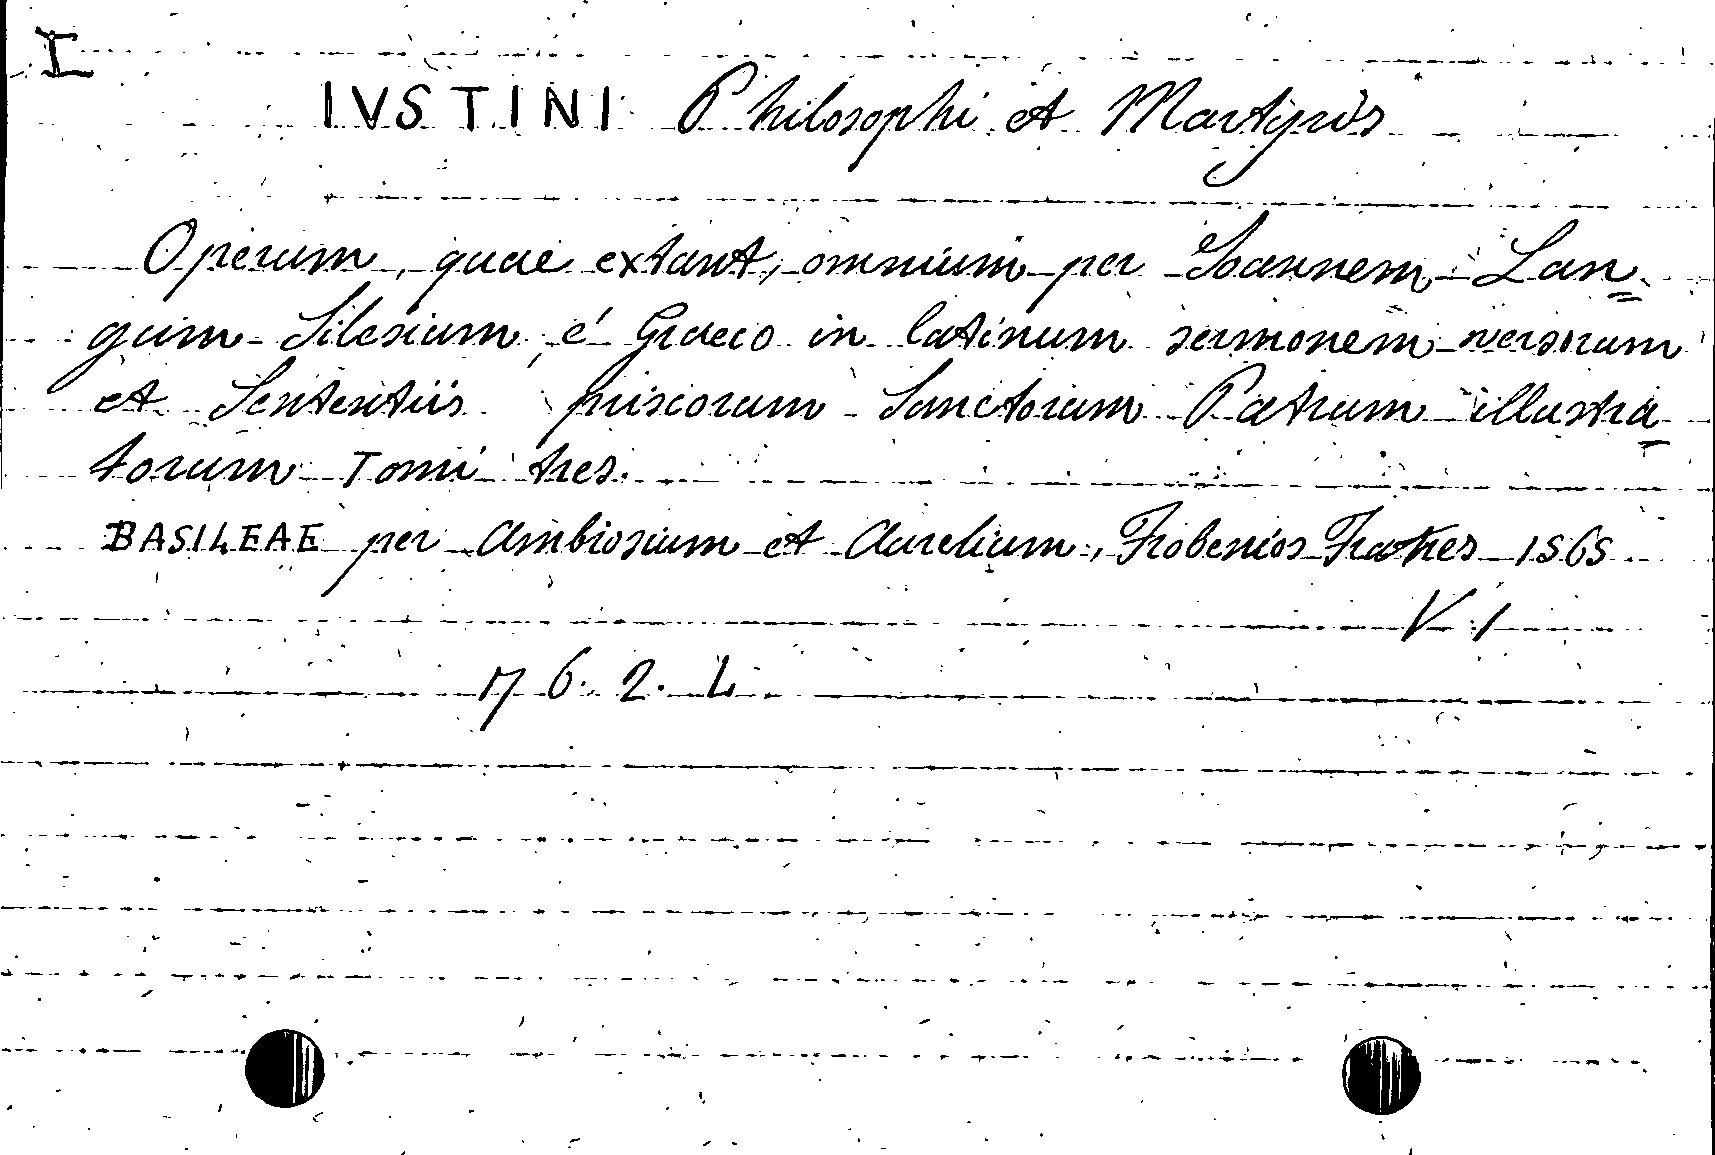 I
IVSTINI Philosophi et Martyris
Operum, quae extant, omnium per Ioannem Lan=
gum Silesium é Graeco in latinum sermonem versorum
et Sententiis priscorum Sanctorum Patrum illustra=
torum Tomi tres.
BASILEAE per Ambrosium et Aurelium, Frobenios Fratres 1565
V. 1
17 6. 2. L.